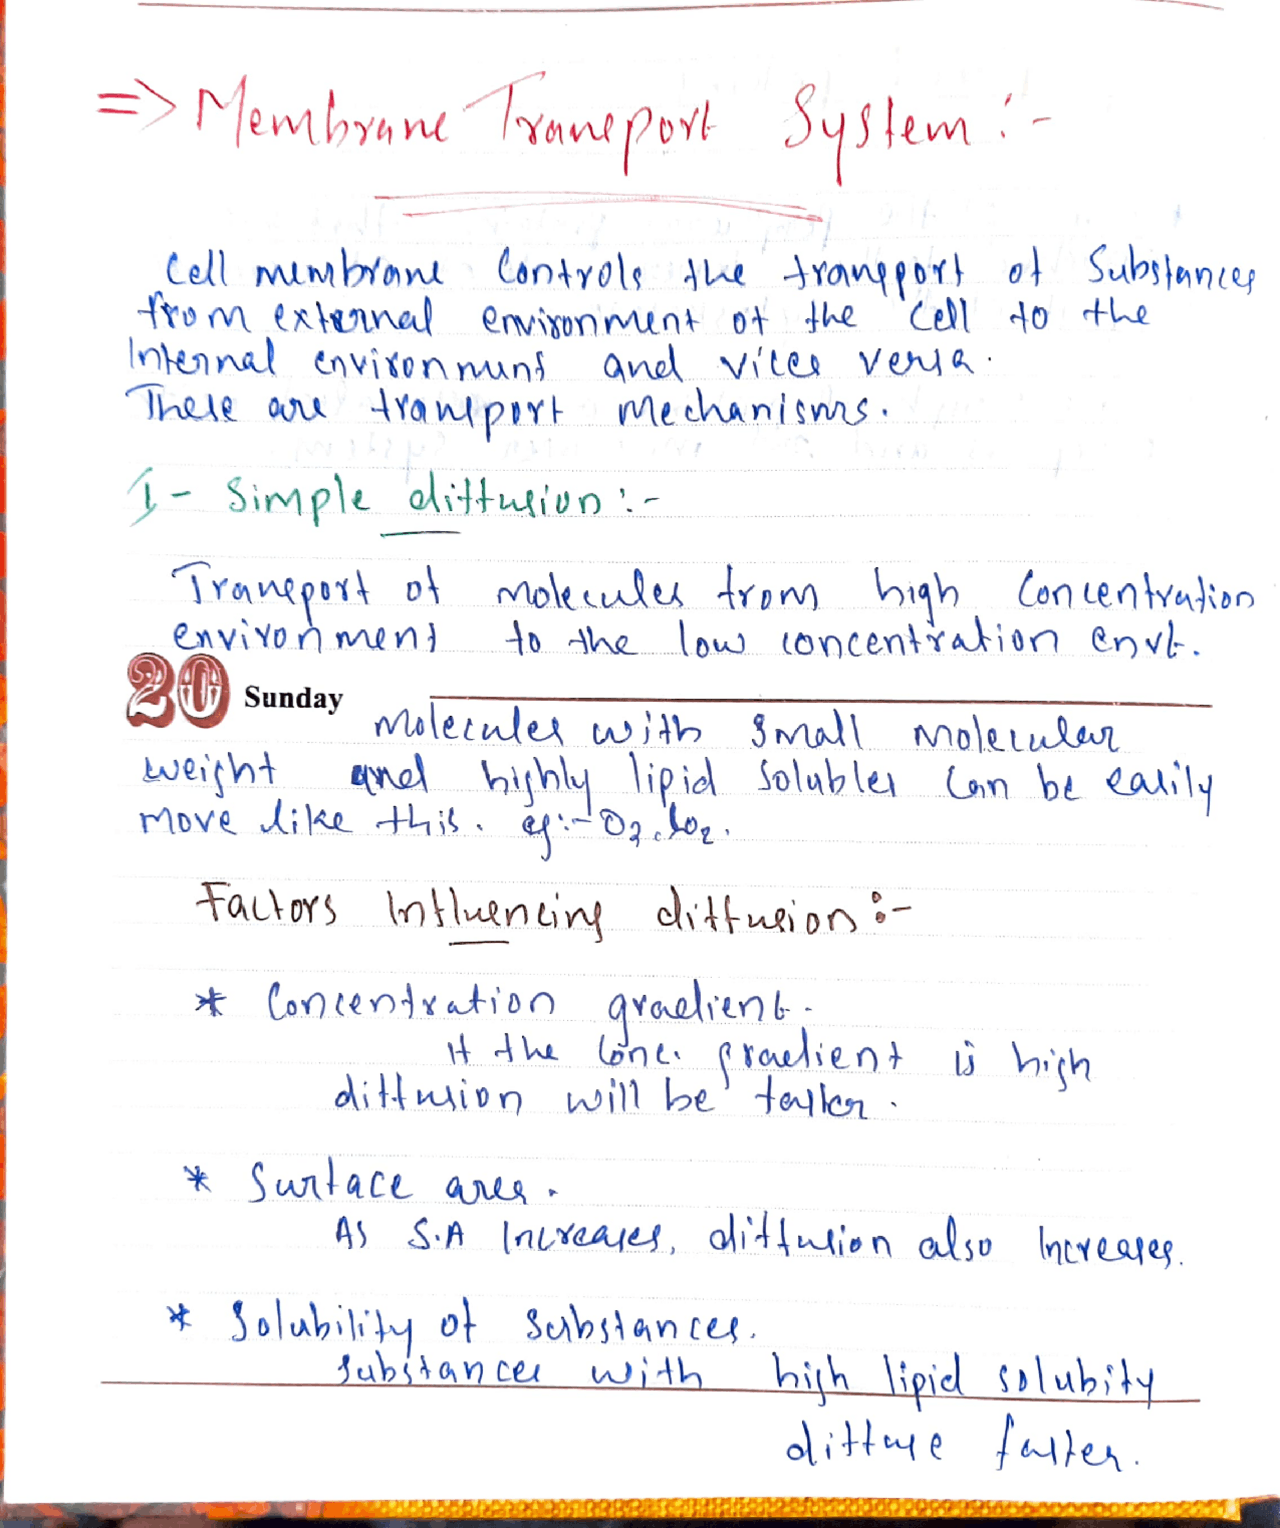 => Membrane Transport System :-
Cell membrane Controls the transport of Substances
from external environment of the Cell to the
Internal environment and vices versa.
These are transport mechanisms.
I - Simple diffusion :-
Transport of molecules from high Concentration
environment to the low concentration envt.
20 Sunday
Molecules with small molecular
weight and highly lipid solubles can be easily
move like this. eg:- O2, CO2.
Factors Influencing diffusion :-
* Concentration gradient.
If the Conc. gradient is high
diffusion will be faster.
* Surface area.
As S.A Increases, diffusion also Increases.
* Solubility of Substances.
Substances with high lipid solubity
diffuse faster.